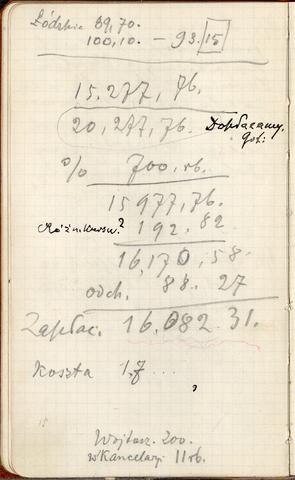 Łódzkie 89,70.
100,10. — 93.15
15.277,76.
20,277,76. Dopłacamy got:
% 700, rb.
15977,76.
Różn. kursw.? 192.82
16,170,58.
odch. 88.27
Zapłac. 16.082.31.
Koszta 1,7...
15
Wojtasz. 200.
w Kancelarji 11 rb.